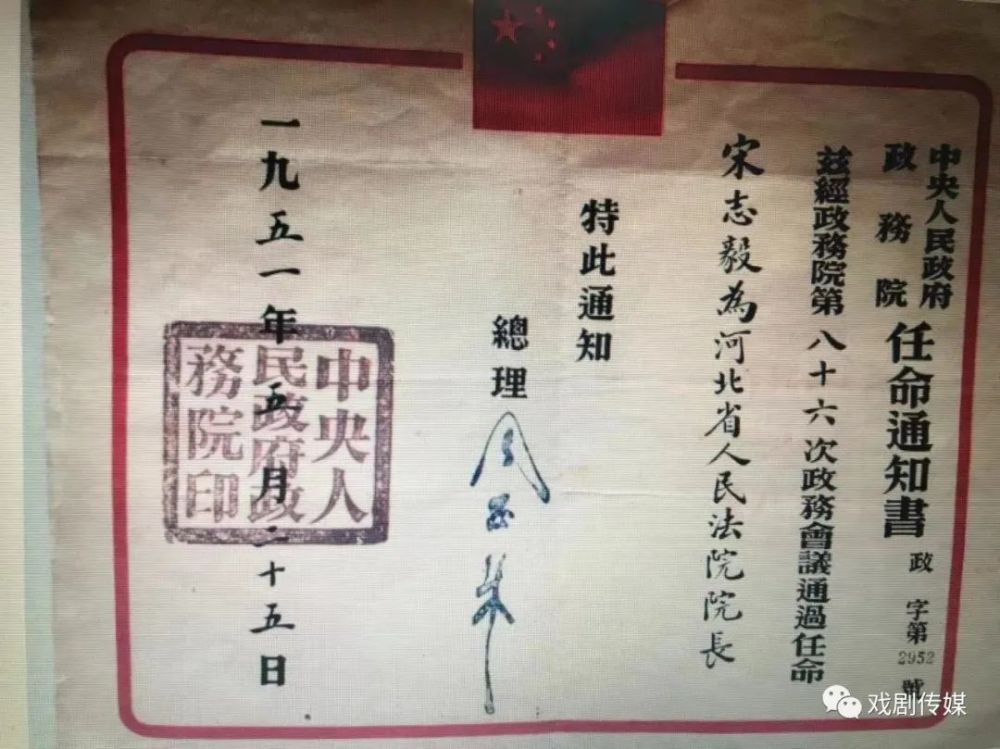 中央人民政府
政務院
任命通知書
政字第2952號
茲經政務院第八十六次政務會議通過任命
宋志毅為河北省人民法院院長
特此通知
總理
周恩来
一九五一年五月二十五日
中央人民政府政務院印
戏剧传媒